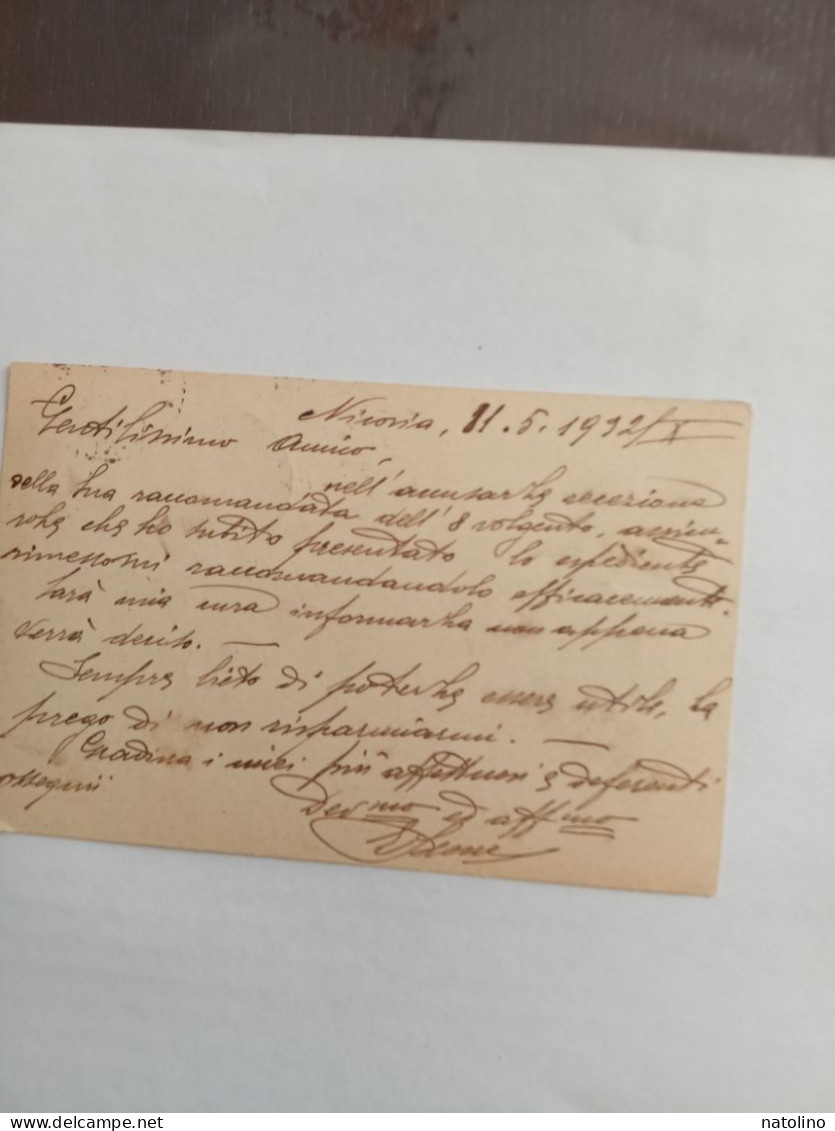 Nicosia, 11.5.1932/X
Gentilissimo Amico,
nell'accusarLe eccezione
della Sua raccomandata dell'8 volgente, assicu-
roLe che ho subito presentato lo espediente
rimessomi raccomandandolo efficacemente.
Sarà mia cura informarLa non appena
verrà deciso. —
Sempre lieto di poterLe essere utile, La
prego di non risparmiarmi. —
Gradisca i miei più affettuosi e deferenti
ossequii
Dev mo ed aff mo
natolino